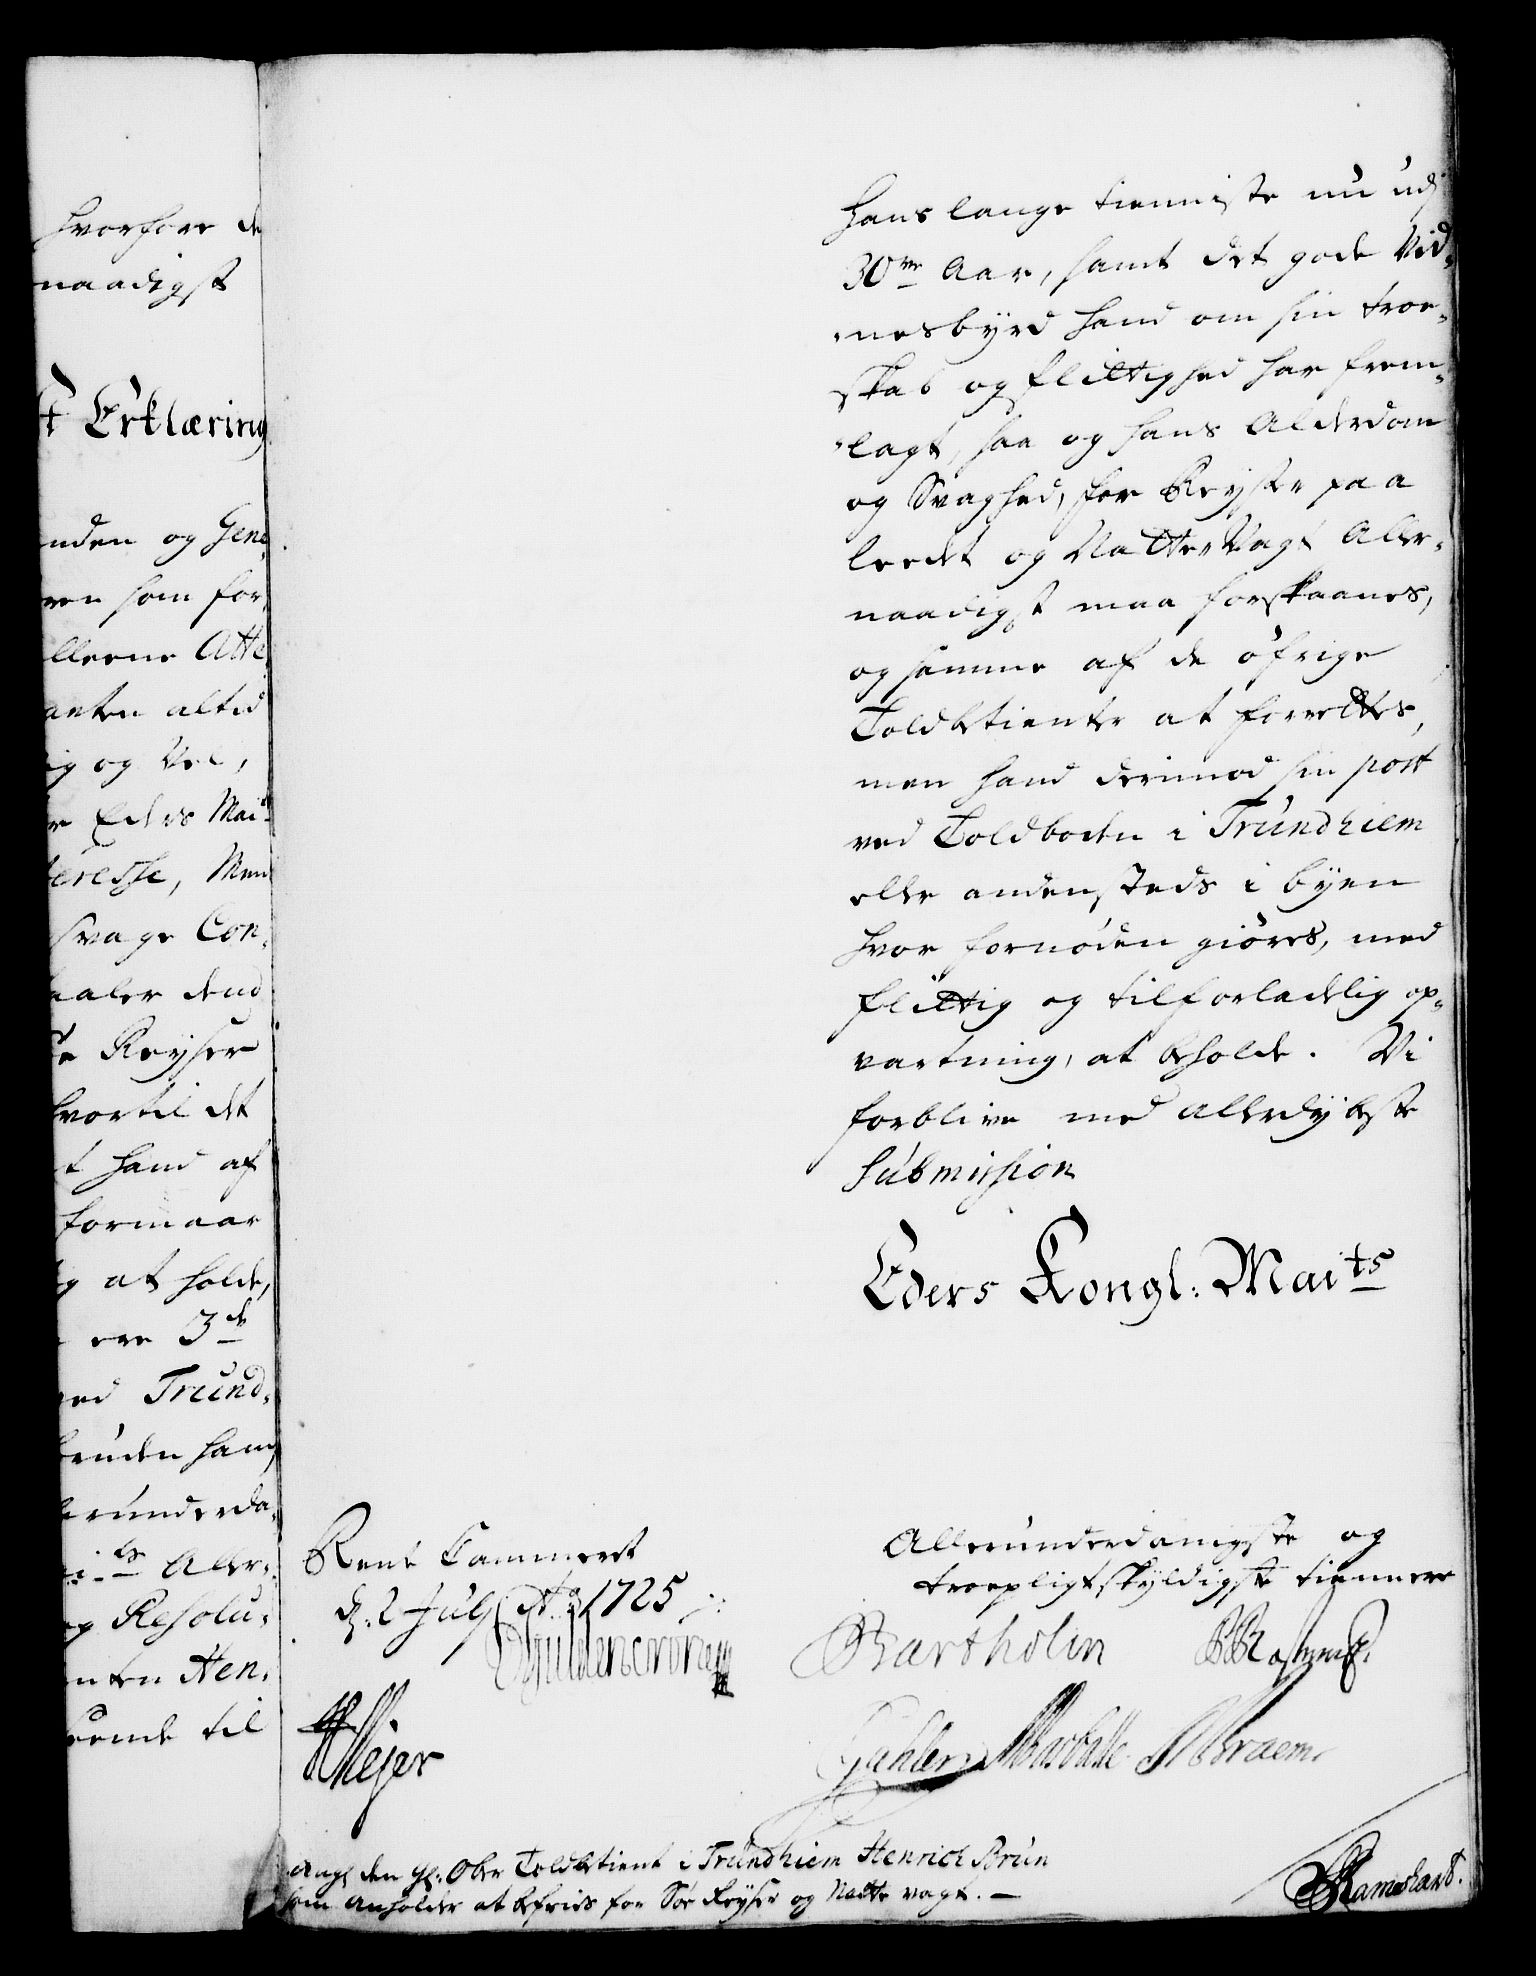 hvorfore de
naadigst
t Erklæring
nden og Gene
ren som for
llerne Atte
anten altid
ig og Vel,
r Eders Maits
teresse, Men
svage Con-
aaler dend
te Reyser
hvortil det
t hand af
formaar
g at holde,
ere 3de
ved Trund-
truden ham
erunderda-
i ts Aller-
ep Resolu-
nten Hen-
eende til
hans lange tienniste nu udj
30ve Aar, samt det gode Vid-
-nesbyrd hand om sin troe-
skab og flittighed har frem-
-lagt, saa og hans Alderdom
og Svaghed, for Reyser paa
leedet og Natte Vagt Aller-
naadigst maa forskaanes,
og samme af de øfrige
Toldbetienter at forrettes,
men hand derimod sin post
ved Toldboden i Trundhiem
eller andensteds i byen
hvor fornøden giøres, med
flittig og tilforladelig op-
vartning, at beholde. Vi
forblive med allerdybeste
Submission
Eders Kongl: Maits
Rente Cammeret
d: 2 July Ao 1725
Allerunderdanigste og
troepligtskyldigste tiennere
Güldencrone
Bartholin
Mejer
Gahler
Braem
Ang: den gl: Ober Toldbetient i Trundhiem Henrich Brun
som Anholder at befries for Søe Reyser og Natte vagt. —
Ramshart.